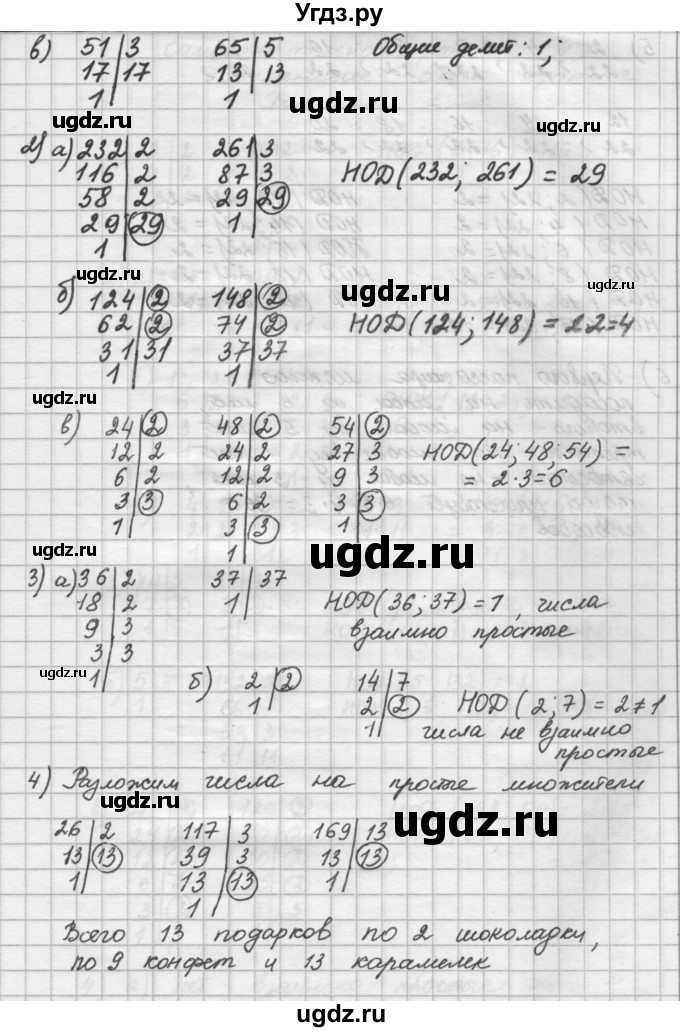 Угдз.ру
в) 51 | 3 65 | 5 Общие делит: 1;
17 | 17 13 | 13
1 1
ugdz.ru
ugdz.ru
ugdz.ru
2) а) 232 | 2 261 | 3
116 | 2 87 | 3 НОД(232; 261) = 29
58 | 2 29 | 29
29 | 29 1
1
ugdz.ru
ugdz.ru
ugdz.ru
б) 124 | 2 148 | 2
62 | 2 74 | 2 НОД(124; 148) = 2·2=4
31 | 31 37 | 37
1 1
ugdz.ru
в) 24 | 2 48 | 2 54 | 2
12 | 2 24 | 2 27 | 3 НОД(24; 48; 54) =
6 | 2 12 | 2 9 | 3 = 2·3=6
3 | 3 6 | 2 3 | 3
1 3 | 3 1
1
ugdz.ru
ugdz.ru
ugdz.ru
3) а) 36 | 2 37 | 37
18 | 2 1 НОД(36; 37) = 1, числа
9 | 3 взаимно простые
3 | 3
1
ugdz.ru
ugdz.ru
б) 2 | 2 14 | 7
1 2 | 2 НОД(2; 7) = 2 ≠ 1
1 числа не взаимно
простые
4) Разложим числа на простые множители
ugdz.ru
ugdz.ru
26 | 2 117 | 3 169 | 13
13 | 13 39 | 3 13 | 13
1 13 | 13 1
1
Всего 13 подарков по 2 шоколадки,
по 9 конфет и 13 карамелек
ugdz.ru
ugdz.ru
ugdz.ru